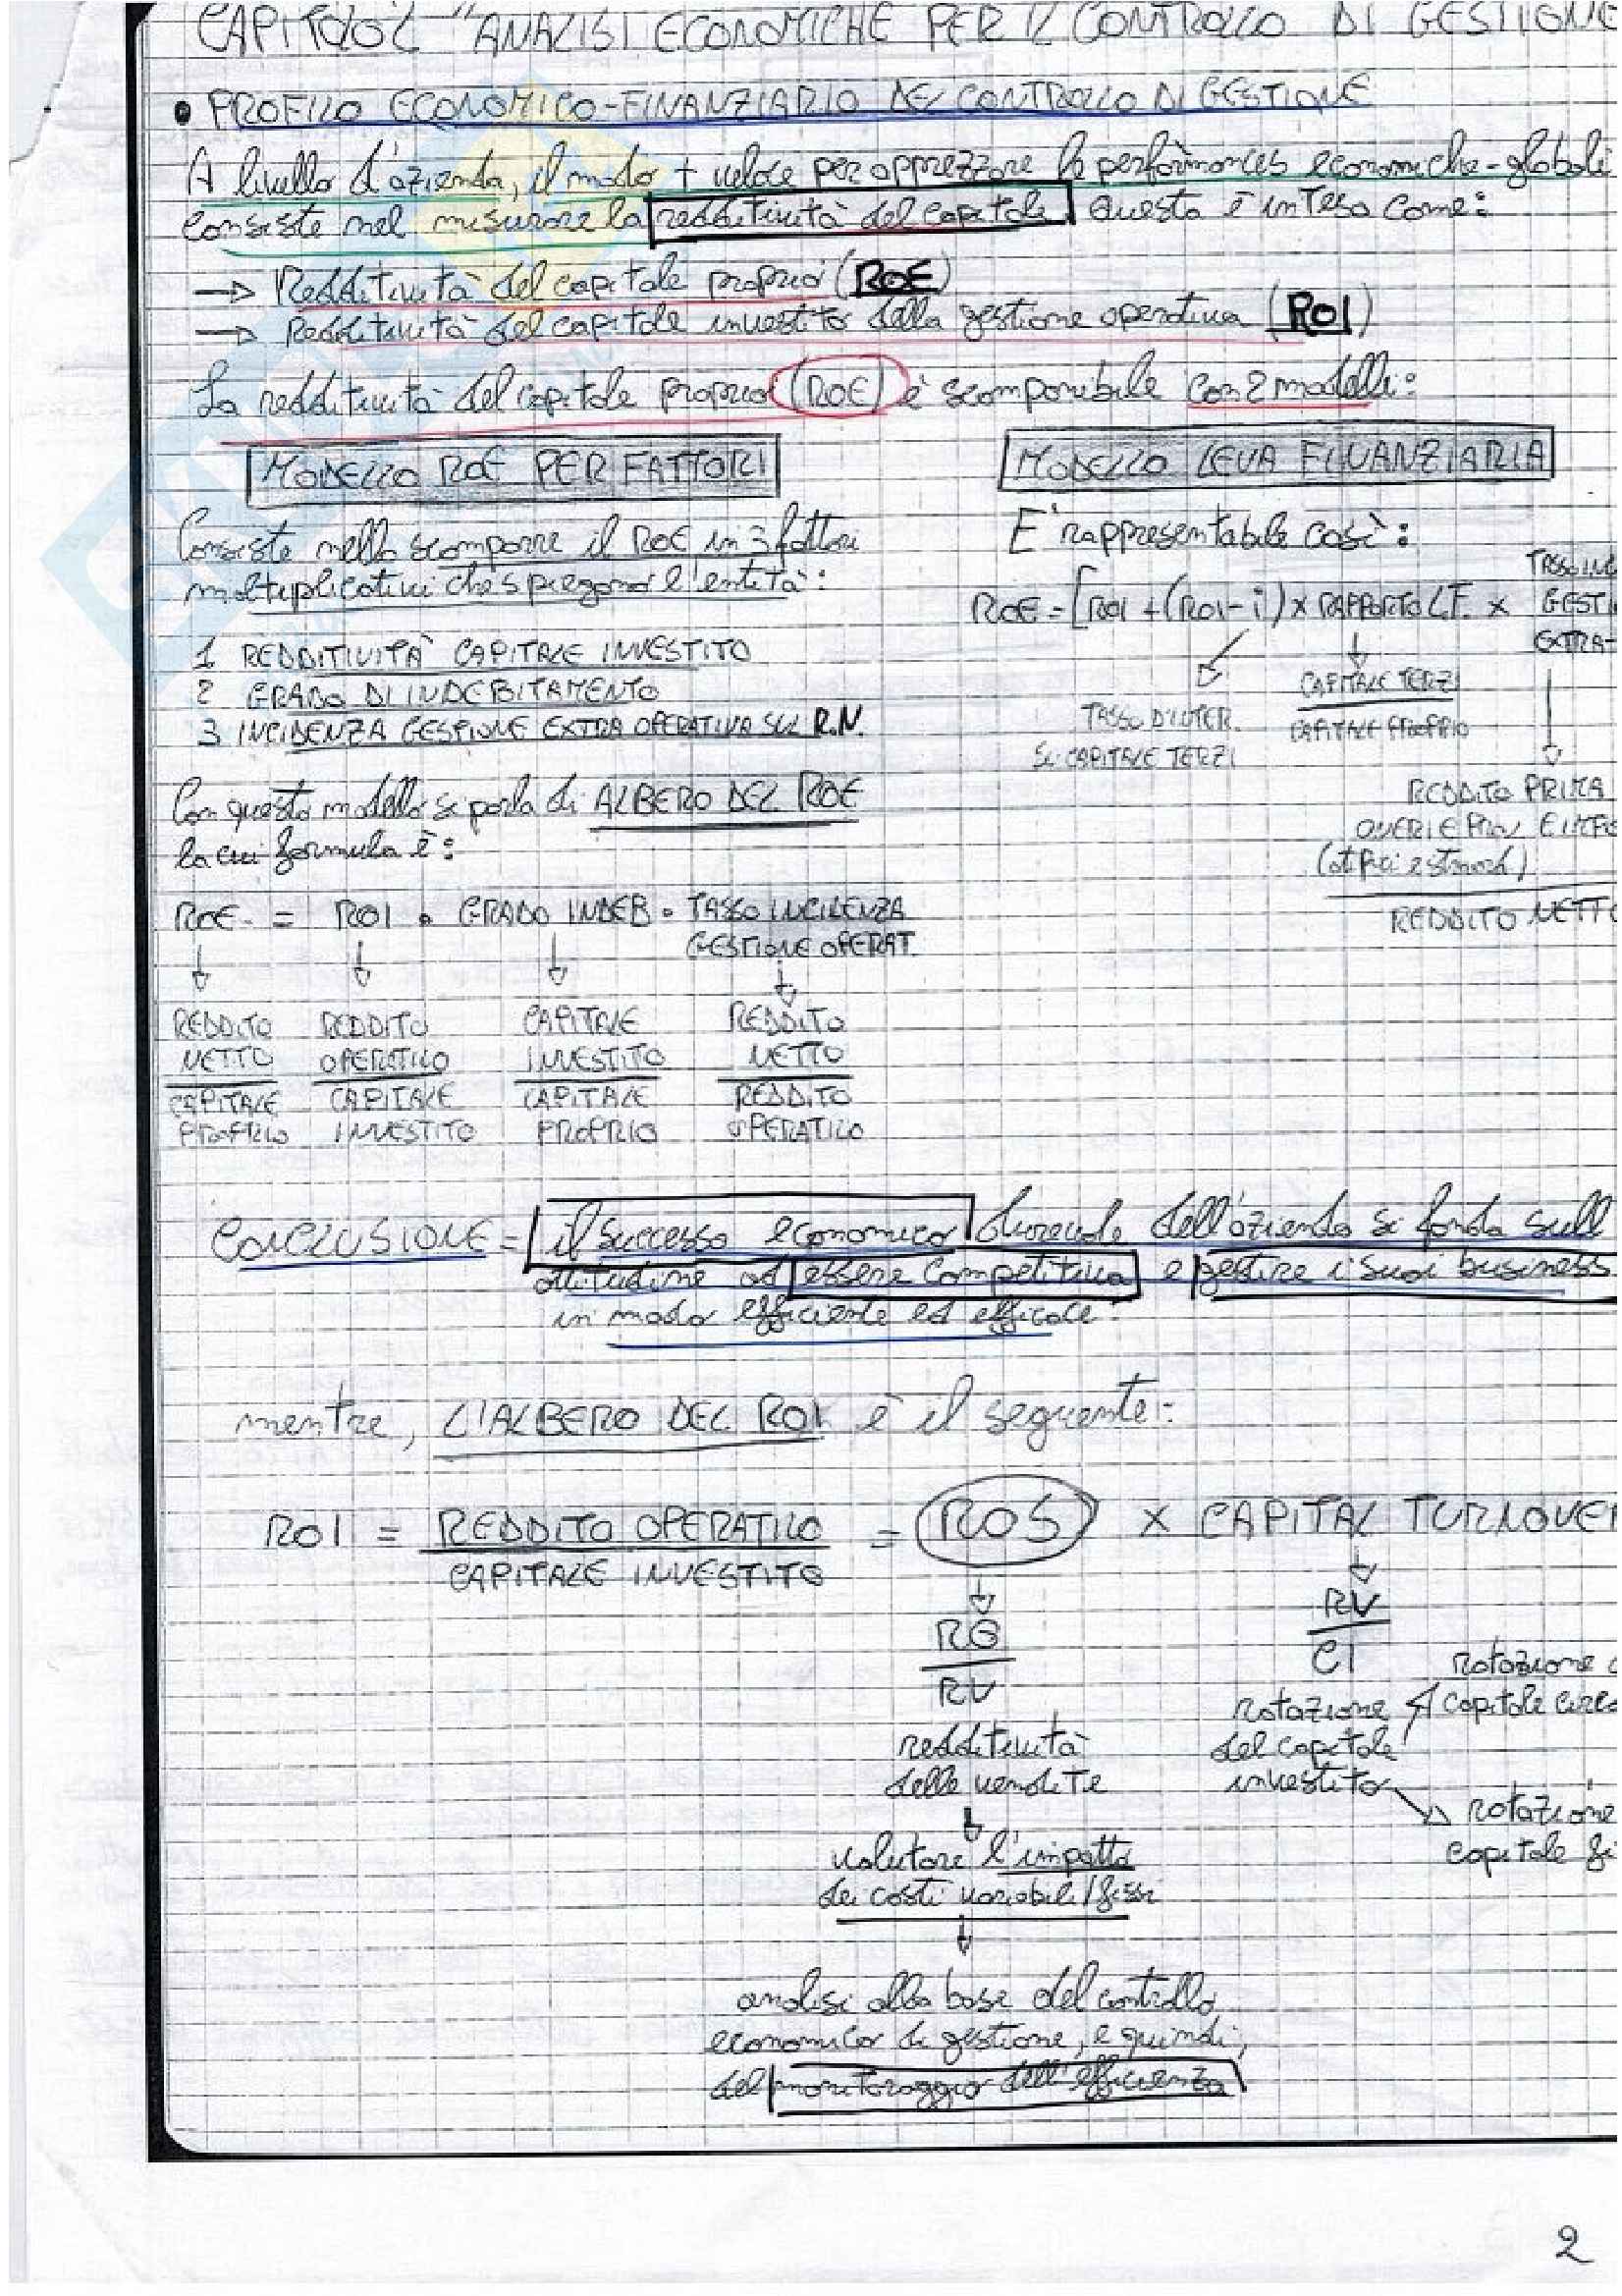 CAPITOLO 2 "ANALISI ECONOMICHE PER IL CONTROLLO DI GESTIONE
• PROFILO ECONOMICO-FINANZIARIO DEL CONTROLLO DI GESTIONE
A livello d'azienda, il modo + veloce per apprezzare le performances economiche-globali
consiste nel misurare la redditività del capitale. Questa è intesa come:
→ Redditività del capitale proprio (ROE)
→ Redditività del capitale investito della gestione operativa (ROI)
La redditività del capitale proprio (ROE) è scomponibile con 2 modelli:
MODELLO ROE PER FATTORI
Consiste nello scomporre il ROE in 3 fattori
moltiplicativi che spiegano l'entità:
1 REDDITIVITÀ CAPITALE INVESTITO
2 GRADO DI INDEBITAMENTO
3 INCIDENZA GESTIONE EXTRA OPERATIVA SUL R.N.
Con questo modello si parla di ALBERO DEL ROE
la cui formula è:
ROE = ROI • GRADO INDEB • TASSO INCIDENZA
GESTIONE OPERAT.
REDDITO REDDITO CAPITALE REDDITO
NETTO OPERATIVO INVESTITO NETTO
CAPITALE CAPITALE CAPITALE REDDITO
PROPRIO INVESTITO PROPRIO OPERATIVO
MODELLO LEVA FINANZIARIA
E' rappresentabile così:
ROE = [ROI + (ROI - i) × RAPPORTO L.F. ×
TASSO INC
GESTI
EXTRA-
TASSO D'INTER.
SU CAPITALE TERZI
CAPITALE TERZI
CAPITALE PROPRIO
REDDITO PRIMA
ONERI E PROV
REDDITO NETTO
CONCLUSIONE = il successo economico durevole dell'azienda si fonda sull
attitudine ad essere competitiva e gestire i suoi business
in modo efficiente ed efficace.
mentre, L'ALBERO DEL ROI è il seguente:
ROI = REDDITO OPERATIVO = ROS × CAPITAL TURNOVER
CAPITALE INVESTITO
RO
RV
redditività
delle vendite
valutare l'impatto
dei costi variabili/fissi
analisi alla base del controllo
economico di gestione, e quindi,
del monitoraggio dell'efficienza
RV
CI
rotazione
del capitale
investito
rotazione c
capitale circo
rotazione
capitale fi
2